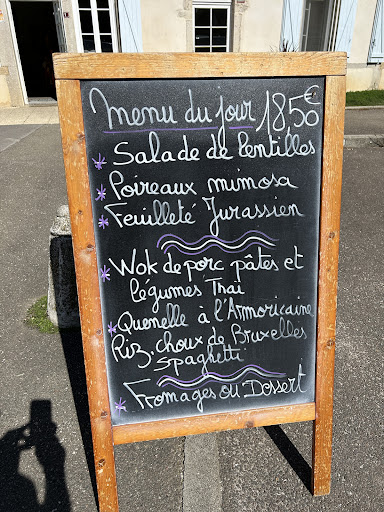 Menu du jour 18,50€
* Salade de lentilles
* Poireaux mimosa
* Feuilleté Jurassien
* Wok de porc, pâtes et
légumes Thaï
* Quenelle à l'Armoricaine
Riz, choux de Bruxelles
Spaghetti
* Fromages ou Dessert